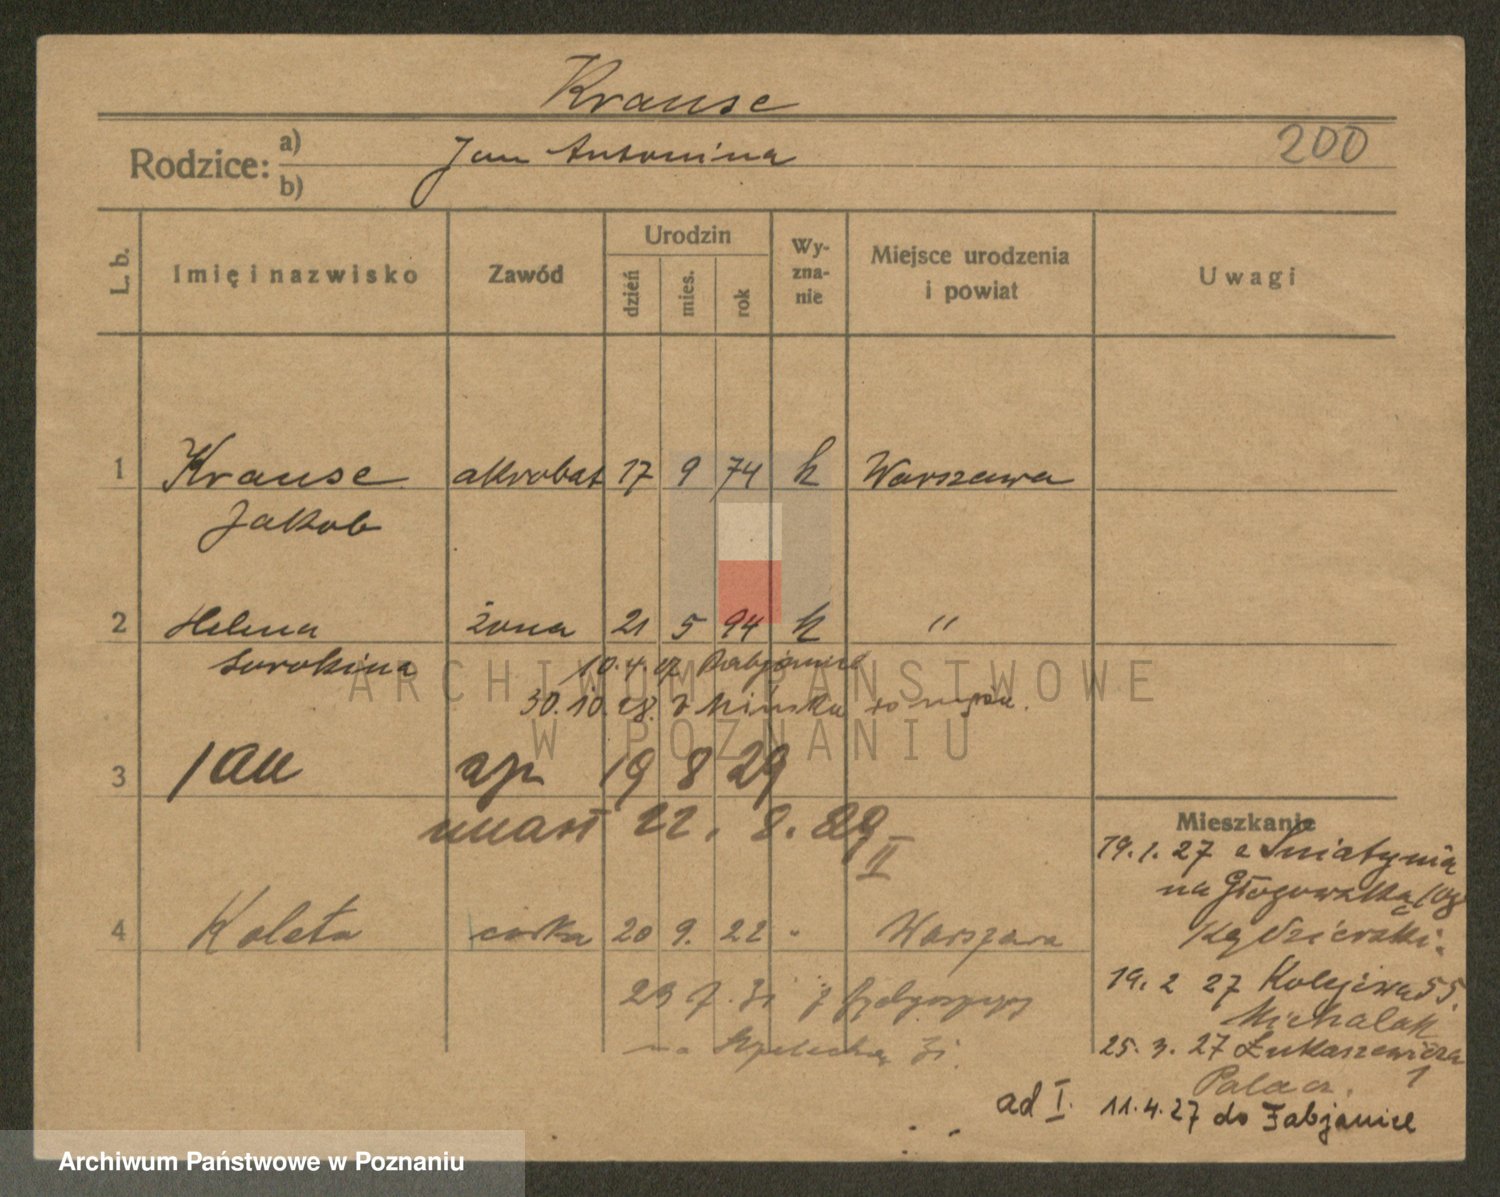 Krause
200
Rodzice: a) Jan Antonina
b)
L. b. Imię i nazwisko Zawód Urodzin dzień mies. rok Wy-zna-nie Miejsce urodzenia i powiat Uwagi
1 Krause akrobat 17 9 74 k Warszawa
Jakob
2 Helena żona 21 5 94 k "
Sorokina 10.4.27
30.10.28. z Mińska
3 Jan syn 19 8 29
zmarł 22. 8. 29
II
4 Koleta córka 20 9. 22 " Warszawa
23 7. 31 z Bydgoszczy
na 31.
Mieszkanie
19.1.27 z Śniatynia
na Głogowską
Kędzierski
19. 2 27 Kolejowa 55.
Michalak
25. 3. 27 Łukaszewicza 1
Palacz.
ad I. 11.4.27 do
ARCHIWUM PAŃSTWOWE
W POZNANIU
Archiwum Państwowe w Poznaniu